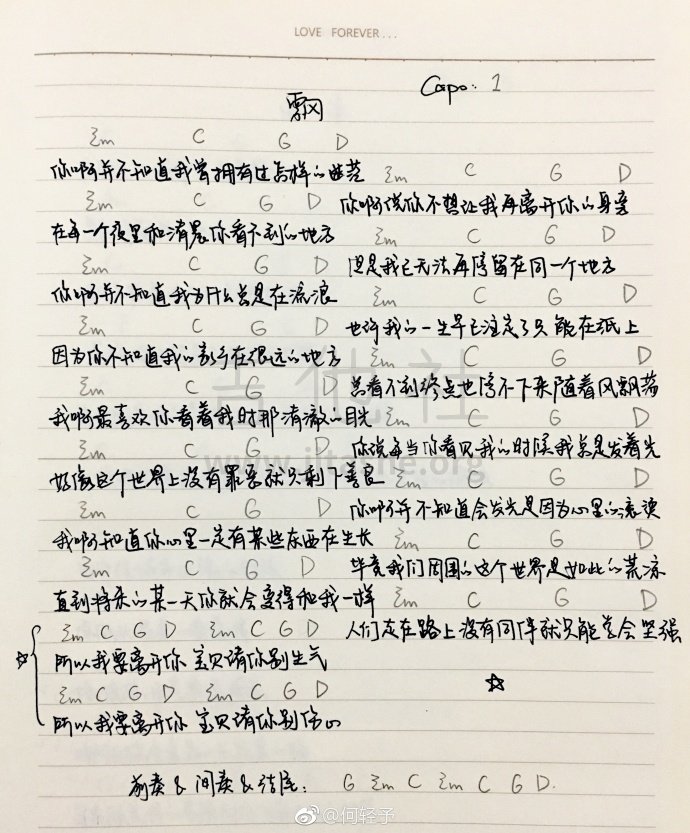 LOVE FOREVER...
Capo: 1
飘
Em C G D
你啊并不知道我曾拥有过怎样的
Em C G D
在每一个夜里和清晨你看不到的地方
Em C G D
你啊并不知道我为什么总是在流浪
Em C G D
因为你不知道我的家乡在很远的地方
Em C G D
我啊最喜欢你看着我时那清澈的目光
Em C G D
好像这个世界上没有罪恶就只剩下善良
Em C G D
我啊知道你心里一定有某些东西在生长
Em C G D
直到将来的某一天你就会变得和我一样
Em C G D
你啊说你不想让我再离开你的身旁
Em C G D
但是我已无法再停留在同一个地方
Em C G D
也许我的一生早已注定了只能在纸上
Em C G D
总看不到终点也停不下来随着风飘荡
Em C G D
你说每当你看见我的时候我总是发着光
Em C G D
你啊并不知道会发光是因为心里的滚烫
Em C G D
毕竟我们周围的这个世界是如此的荒凉
Em C G D
人们走在路上没有同伴就只能学会坚强
☆
Em C G D Em C G D
所以我要离开你 宝贝请你别生气
Em C G D Em C G D
所以我要离开你 宝贝请你别伤心
☆
前奏&间奏&结尾: G Em C Em C G D.
吉他社
www.jitashe.org
@何轻子